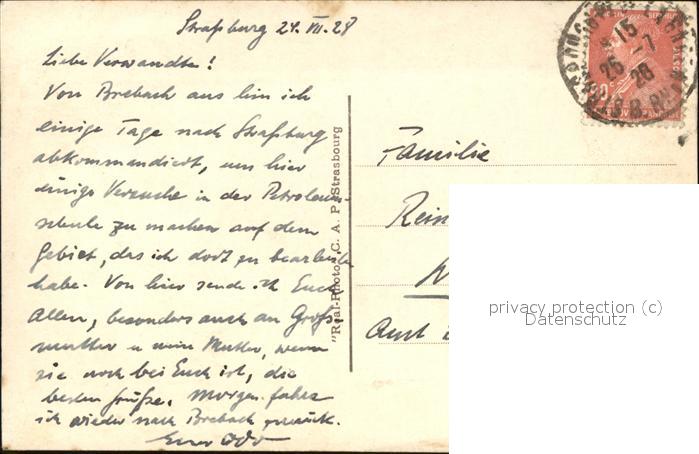 Straßburg 24. VII. 28
Liebe Verwandte!
Von Brebach aus bin ich
einige Tage nach Straßburg
abkommandiert, um hier
einige Versuche in der Petroleum-
schule zu machen auf dem
Gebiet, das ich dort zu bearbeiten
habe. Von hier sende ich Euch
Allen, besonders auch an Groß-
mutter u meine Mutter, wenn
sie noch bei Euch ist, die
besten Grüße. Morgen fahre
ich wieder nach Brebach zurück.
Euer Otto
"Real-Photo" C. A. P. Strasbourg
Familie
Rein
Amt
25 -7
28
STRASBOURG
B. RHIN
privacy protection (c)
Datenschutz